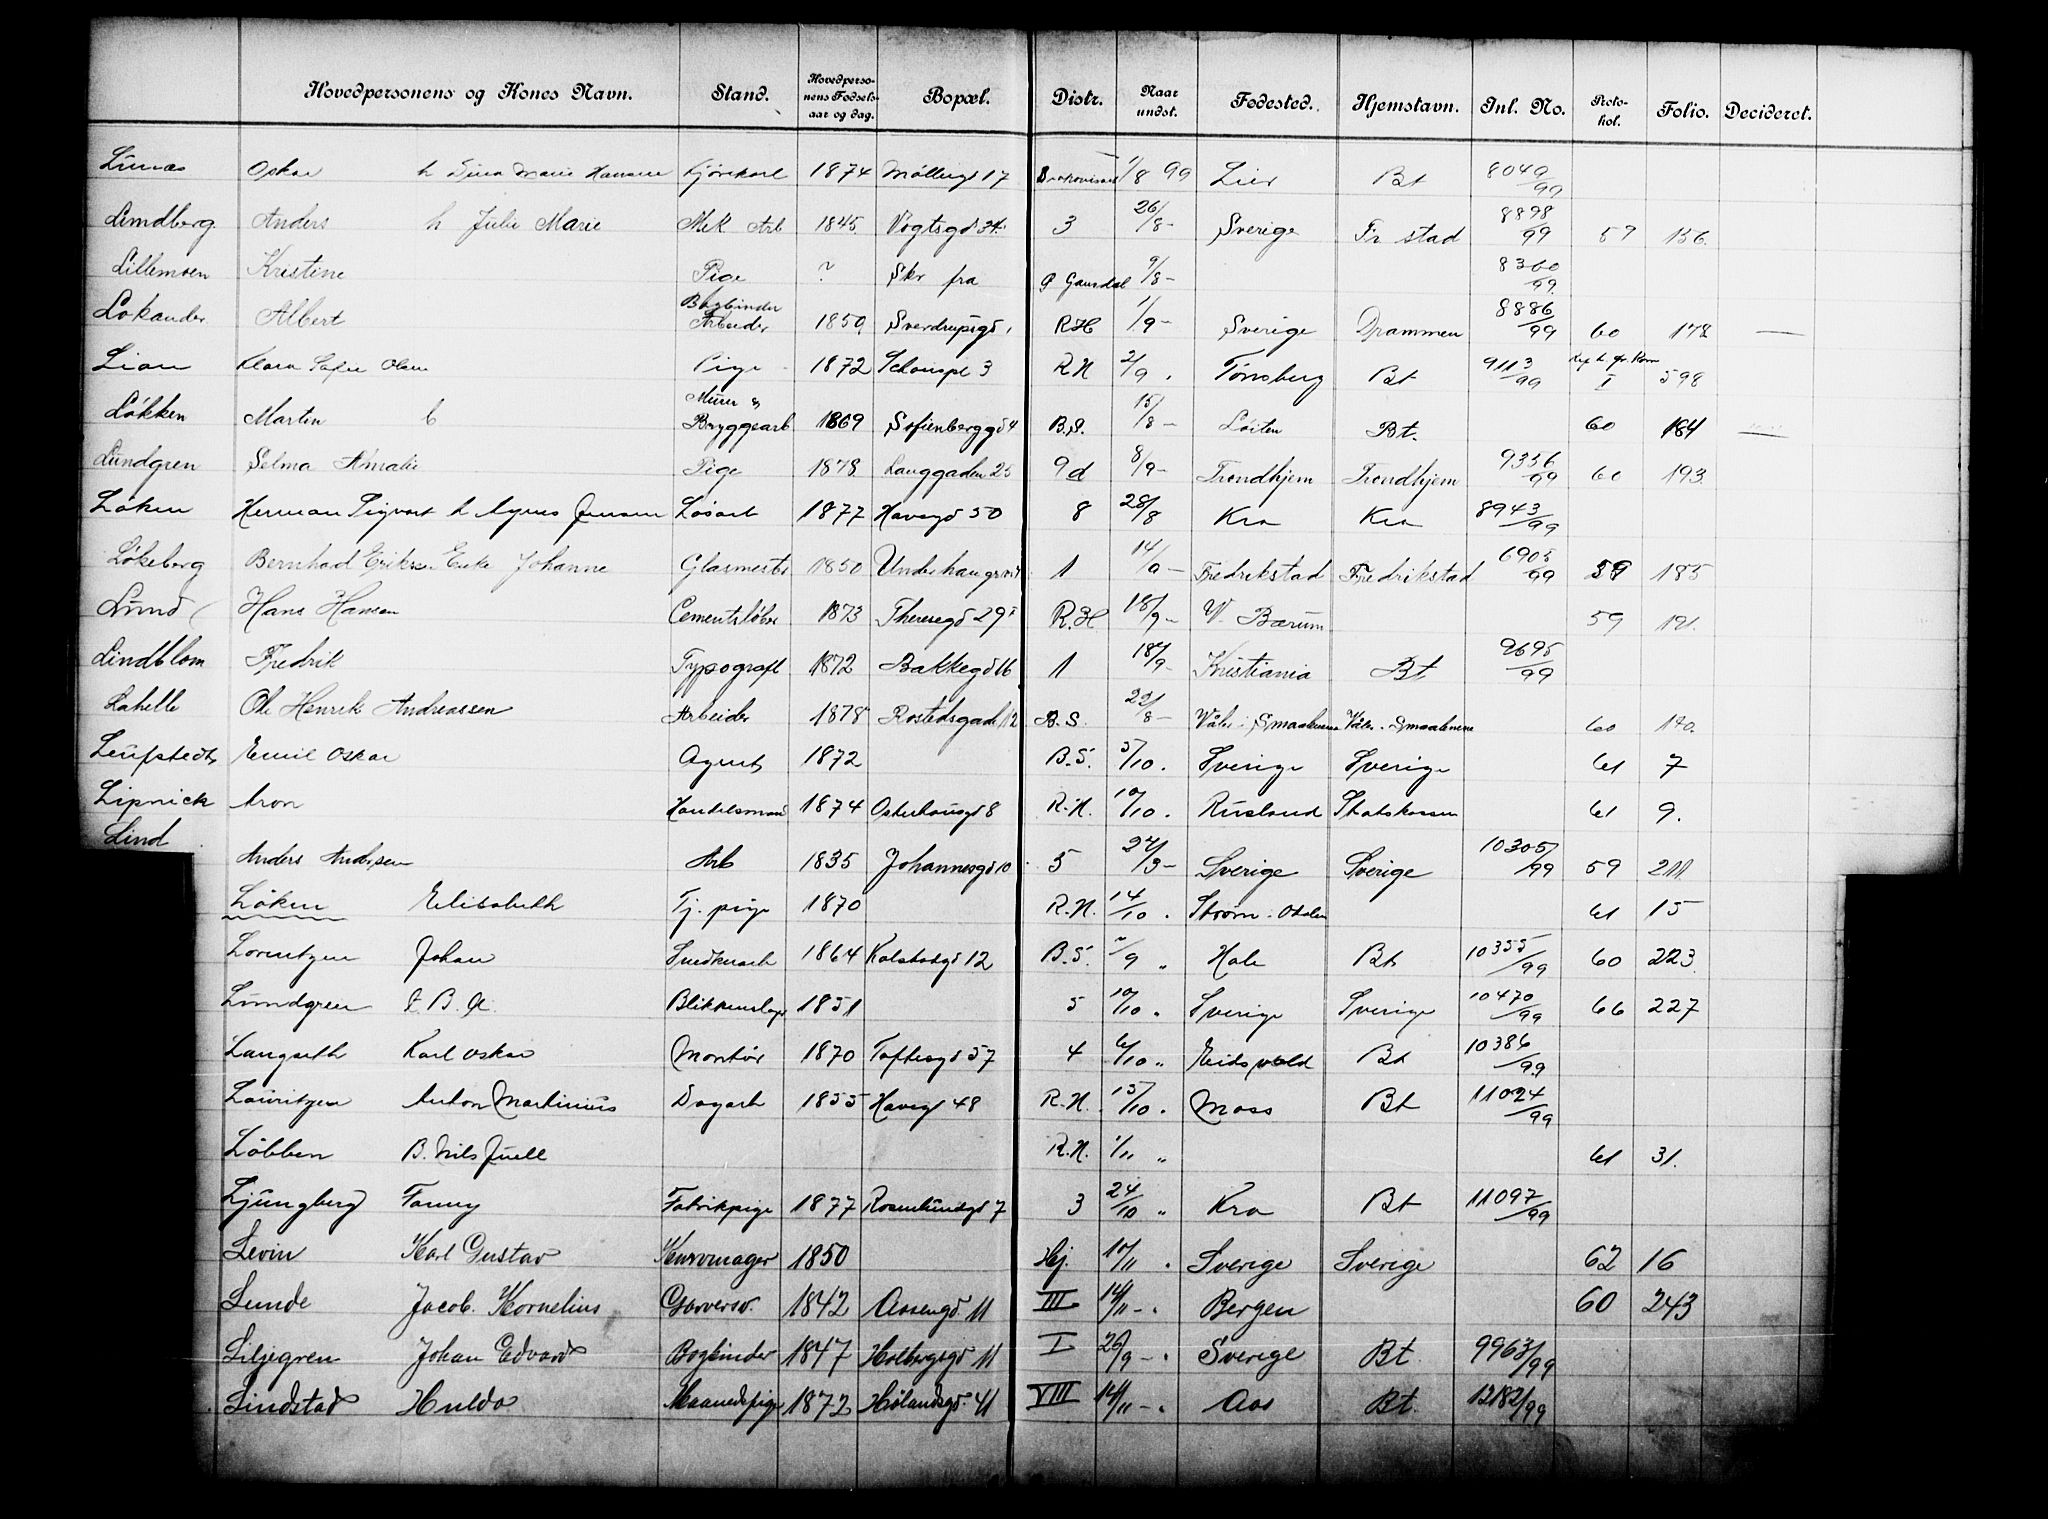 Hovedpersonens og Kones Navn. Stand. Hovedpersonens Fødselsaar og dag. Bopæl. Distr. Naar undst. Fødested. Hjemstavn. Inl. No. Protokol. Folio. Decideret.
Oskar h Marie Hansen Kjørekarl 1874 Møllergd 17 1/8 99 Lier Bt 8049/99
Lundberg Anders h Julie Marie Mek Arb 1845 Vogtsgd 3 26/8 - Sverige Fr stad 8898/99 59 156.
Lillemoen Kristine Pige ? Skr fra Gausdal 9/8 - 8360/99
Lokander Albert Bogbinder Arbeider 1850 Sverdrupsgd 1 R.H 1/9 - Sverige Drammen 8886/99 60 178 —
Lian Klara Sofie Olsen Pige 1872 Schouspl 3 R.N 2/9 . Tønsberg Bt 9113/99 I 598
Løkken Martin Murer & Bryggearb 1869 Sofienberggd 4 B.S. 15/8 - Løiten Bt. 60 184 —
Lundgren Selma Amalie Pige 1878 Langgaden 25 9 d 8/9 - Trondhjem Trondhjem 9356/99 60 193.
Løken Herman Sigvart h Agnes Jensen Løsarb 1877 Havegd 50 8 28/8 Kra Kra 8943/99
Løkeberg Bernhard Eriks. Enke Johanne Glasmester 1850 Underhaugsv 1 14/9 - Fredrikstad Fredrikstad 6905/99 59 185
Lund Hans Hansen Cementstøber 1873 Theresegd 29 I R.H. 18/9 - V. Bærum 59 191.
Lindblom Fredrik Typograf 1872 Bakkegd 16 1 18/9 - Kristiania Bt 9695/99
Lahelle Ole Henrik Andreassen Arbeider 1878 Rostedsgade 12 B.S. 22/8 - Våler i Smaalenene Våler i Smaalenene 60 170.
Leufstedt Emil Oskar Agent 1872 B.S. 5/10 . Sverige Sverige 61 7
Lipnick Aron Handelsmand 1874 Osterhausgd 8 R.N. 10/10 . Rusland Statskassen 61 9.
Lind Anders Andersen Arb 1835 Johannesgd 10 5 27/3 - Sverige Sverige 10305/99 59 211
Løken Elisabeth Tj. pige 1870 R.N. 14/10 . Strøm i Odalen 61 15
Lorentzen Johan Snedkerarb 1864 Kalstadgd 12 B.S. /9 " Hole Bt 10355/99 60 223.
Lundgren F. B. A. Blikkenslager 1851 5 10/10 . Sverige Sverige 10470/99 66 227
Langseth Karl Oskar Montør 1870 Toftesgd 57 4 6/10 " Eidsvold Bt 10386/99
Lauritzen Anton Martinius Dagarb 1855 Havegd 48 R.N. 15/10 . Moss Bt 11024/99
Løbben B. Nils Juell R.N. 1/11 " 61 31.
Ljungberg Fanny Fabrikpige 1877 Rosenlundgd 7 3 24/10 " Kra Bt 11097/99
Levin Karl Gustav Kurvmager 1850 Hj. 10/11 . Sverige Sverige 62 16
Lunde Jacob Kornelius Garversv. 1842 Aasengd 11 III 14/11 - . Bergen 60 243
Liljegren Johan Edvard Bogbinder 1847 Holbergsgd 11 I 26/9 - . Sverige Bt. 9963/99
Lindstad Hulda Maanedspige 1872 Hølandsgd. 41 VIII 14/11 - . Aas Bt. 12182/99